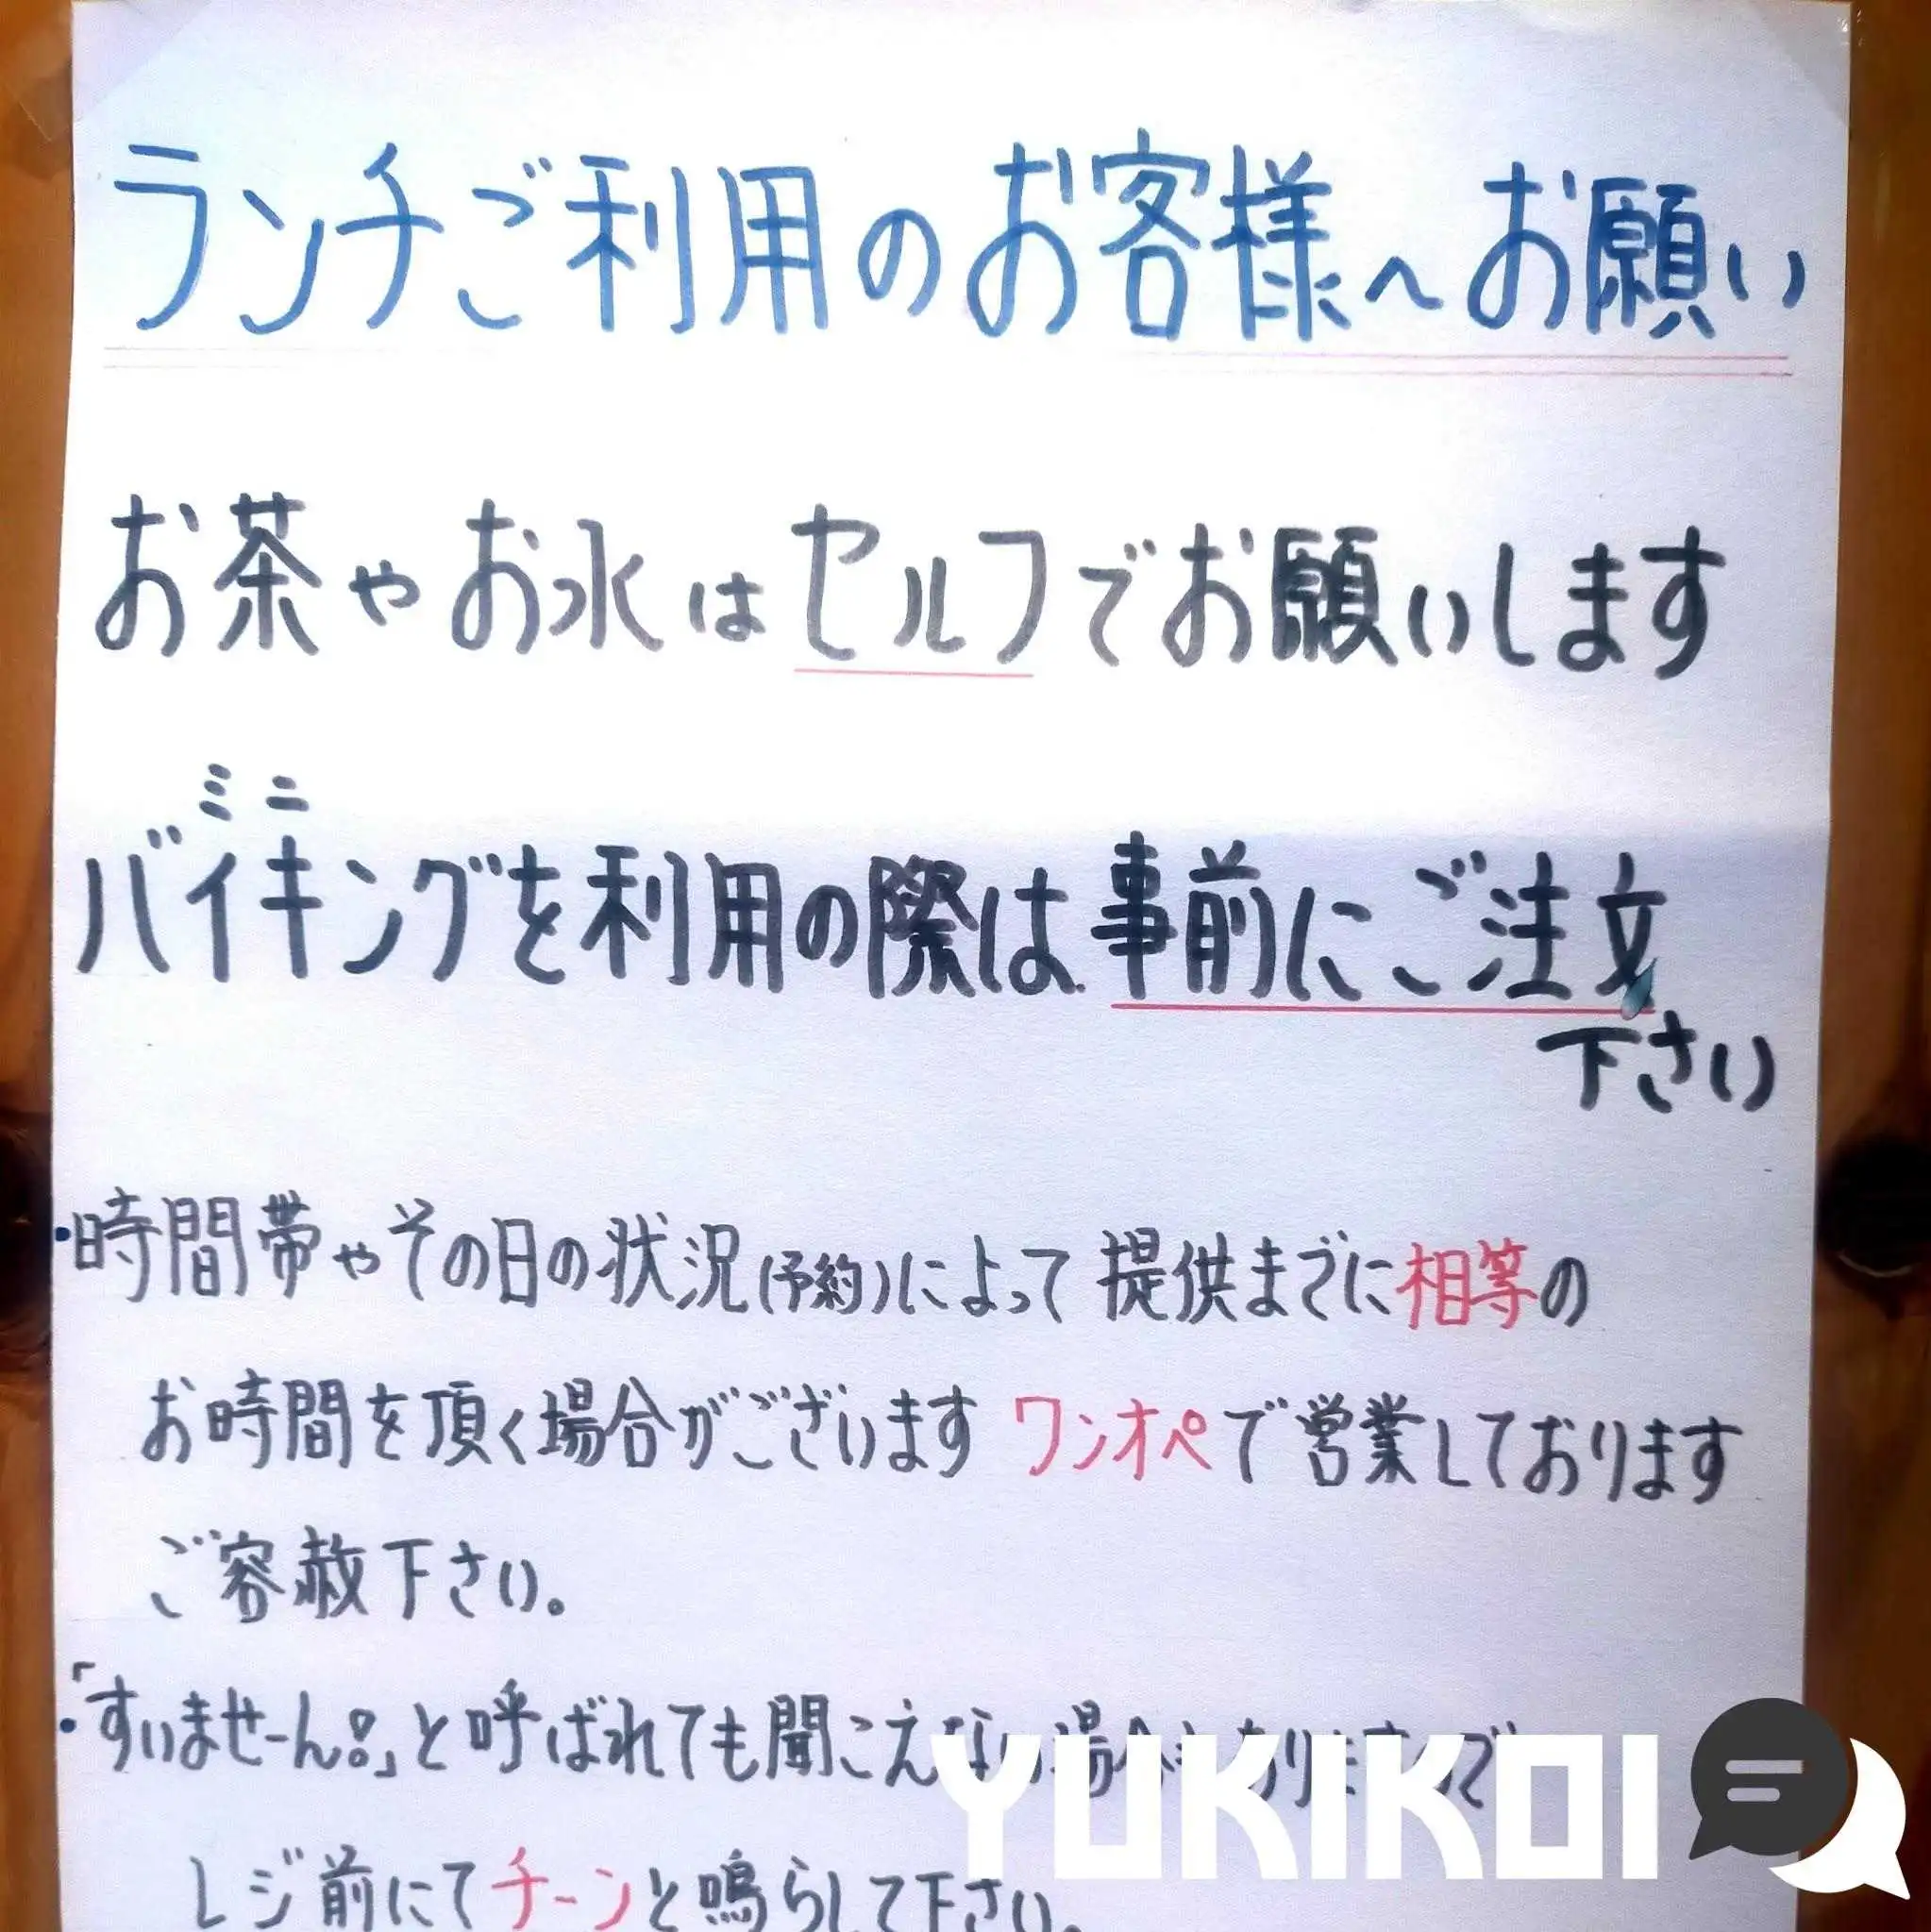 ランチご利用のお客様へお願い
お茶やお水はセルフでお願いします
ミニ
バイキングを利用の際は事前にご注文
下さい
・時間帯やその日の状況(予約)によって提供までに相等の
お時間を頂く場合がございます ワンオペで営業しております
ご容赦下さい。
・「すいませーん!!」と呼ばれても聞こえない場合もありますので
レジ前にてチーンと鳴らして下さい。
YUKIKOI